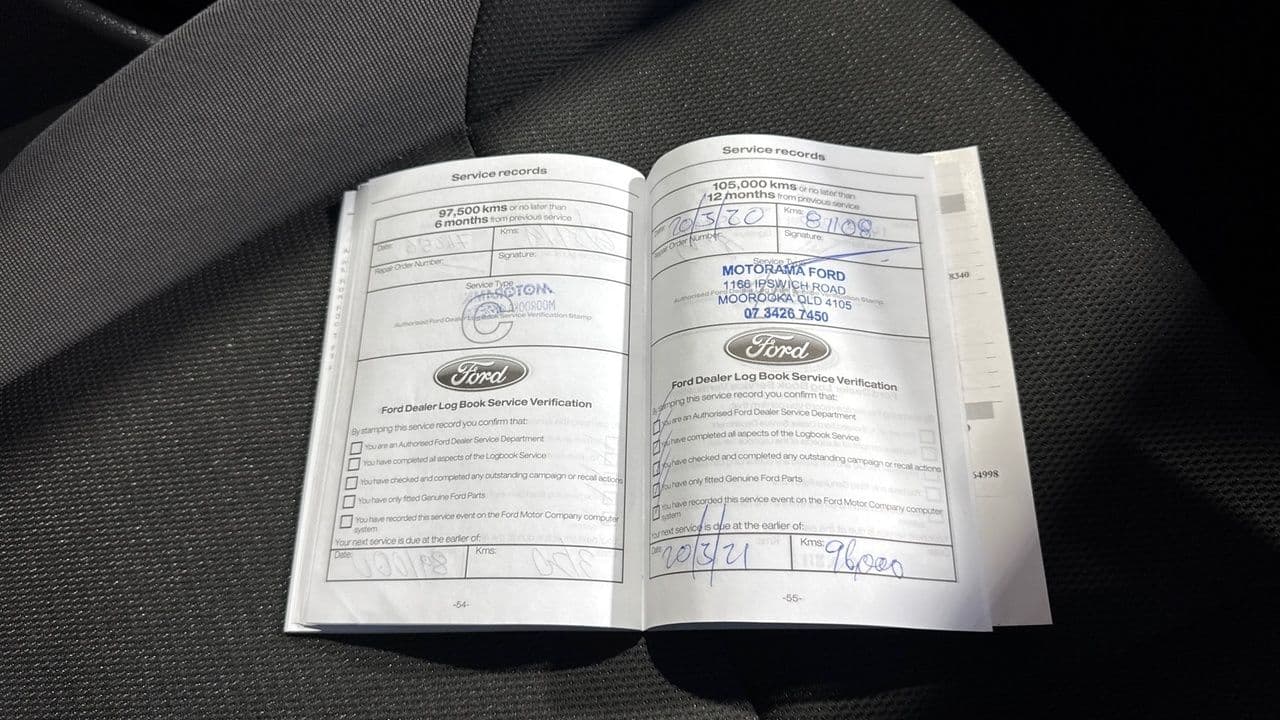 Service records
97,500 kms or no later than
6 months from previous service
Date:
Kms:
Repair Order Number:
Signature:
Service Type
Authorised Ford Dealer Log Book Service Verification Stamp
Ford
Ford Dealer Log Book Service Verification
By stamping this service record you confirm that:
You are an Authorised Ford Dealer Service Department
You have completed all aspects of the Logbook Service
You have checked and completed any outstanding campaign or recall actions
You have only fitted Genuine Ford Parts
You have recorded this service event on the Ford Motor Company computer
system
Your next service is due at the earlier of:
Date:
Kms:
-54-
Service records
105,000 kms or no later than
12 months from previous service
Date: 20/3/20
Kms: 81108
Repair Order Number:
Signature:
Service Type
MOTORAMA FORD
1166 IPSWICH ROAD
MOOROOKA QLD 4105
07 3426 7450
Ford
Ford Dealer Log Book Service Verification
By stamping this service record you confirm that:
You are an Authorised Ford Dealer Service Department
You have completed all aspects of the Logbook Service
You have checked and completed any outstanding campaign or recall actions
You have only fitted Genuine Ford Parts
You have recorded this service event on the Ford Motor Company computer
system
Your next service is due at the earlier of:
Date: 20/3/21
Kms: 96,000
-55-
8340
54998